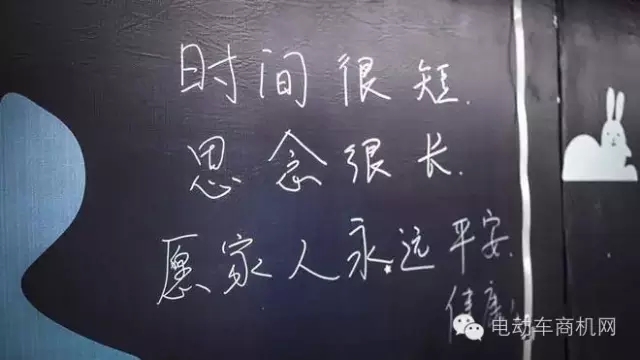 时间很短.
思念很长.
愿家人永远平安.
健康
电动车商机网